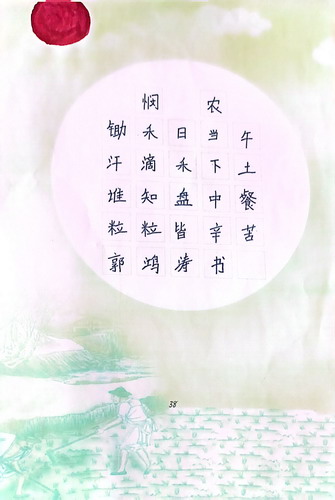 悯农
锄禾日当午
汗滴禾下土
谁知盘中餐
粒粒皆辛苦
郭鸿涛书
38